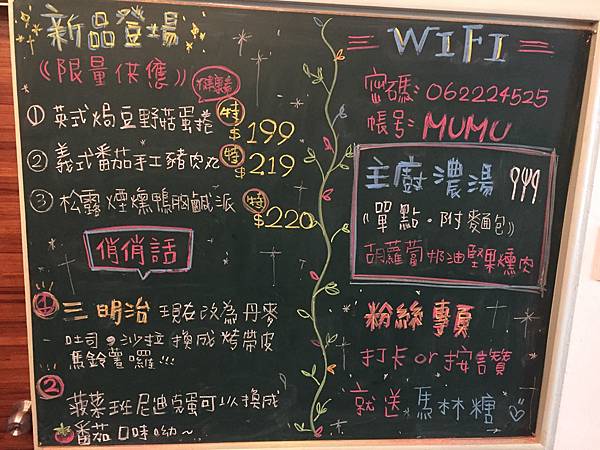 新品登場
《限量供應》
① 英式焗豆野菇蛋捲 特 $199
② 義式番茄手工豬肉丸 特 $219
③ 松露煙燻鴨胸鹹派 特 $220
俏俏話
① 三明治 現在改為丹麥
吐司。沙拉換成烤帶皮
馬鈴薯囉!!!
② 菠菜班尼迪克蛋可以換成
番茄口味呦~
WIFI
密碼:062224525
帳号:MUMU
主廚濃湯
《單點·附麵包》
胡蘿蔔奶油堅果燻肉
粉絲專頁
打卡or按讚
就送馬林糖